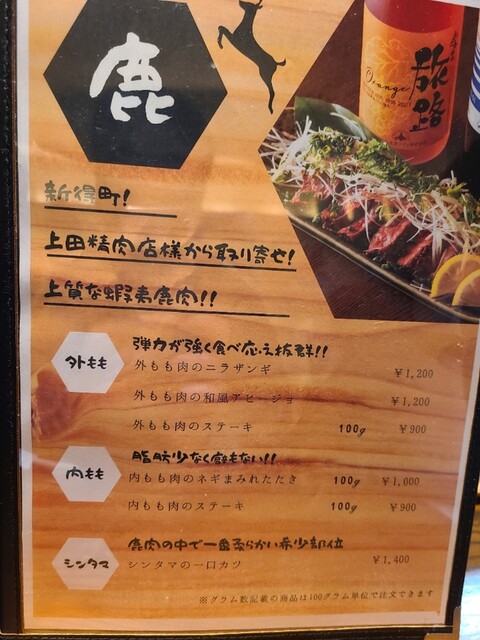 鹿
Orange
旅路
新得町!
上田精肉店様から取り寄せ!
上質な蝦夷鹿肉!!
外もも
弾力が強く食べ応え抜群!!
外もも肉のニラザンギ ¥1,200
外もも肉の和風アヒージョ ¥1,200
外もも肉のステーキ 100g ¥900
内もも
脂肪少なく癖もない!!
内もも肉のネギまみれたたき 100g ¥1,000
内もも肉のステーキ 100g ¥900
シンタマ
鹿肉の中で一番柔らかい希少部位
シンタマの一口カツ ¥1,400
※グラム数記載の商品は100グラム単位で注文できます